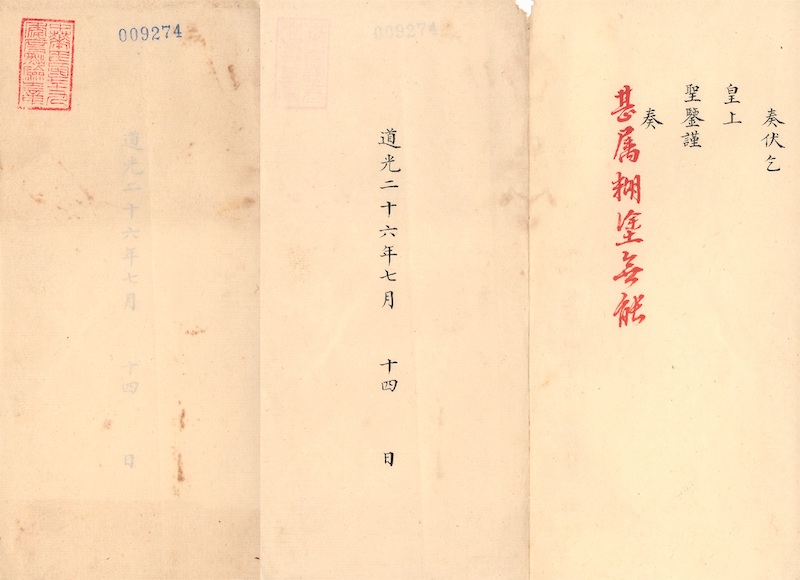 奏伏乞
皇上
聖鑒謹
奏
甚属糊塗無能
009274
道光二十六年七月 十四 日
009274
道光二十六年七月 十四 日